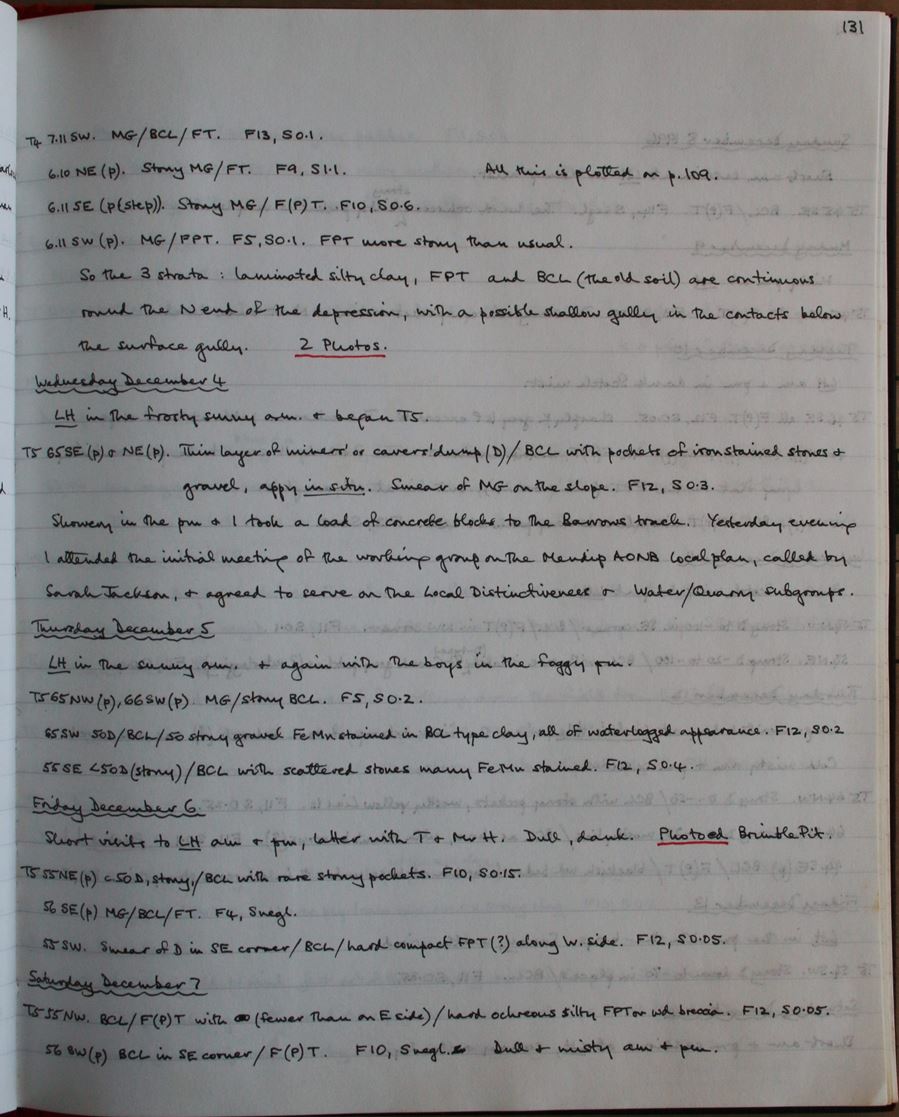 131
T4 7.11 SW. MG/BCL/FT. F13, S0.1.
6.10 NE (p). Stony MG/FT. F9, S1.1. All this is plotted on p.109.
6.11 SE (p(step)). Stony MG/F(P)T. F10, S0.6.
6.11 SW (p). MG/FPT. F5, S0.1. FPT more stony than usual.
So the 3 strata: laminated silty clay, FPT and BCL (the old soil) are continuous
round the N end of the depression, with a possible shallow gully in the contacts below
the surface gully. 2 Photos.
Wednesday December 4
LH in the frosty sunny am. + began T5.
T5 65SE (p) & NE (p). Thin layer of miners' or cavers' dump (D)/BCL with pockets of iron stained stones +
gravel, appy in situ. Smear of MG on the slope. F12, S0.3.
Showery in the pm & I took a load of concrete blocks to the Barrows track. Yesterday evening
I attended the initial meeting of the working group on the Mendip AONB local plan, called by
Sarah Jackson, & agreed to serve on the Local Distinctiveness & Water/Quarry subgroups.
Thursday December 5
LH in the sunny am. + again with the boys in the foggy pm.
T5 65NW (p), 66SW (p). MG/stony BCL. F5, S0.2.
65SW 50D/BCL/50 stony gravel FeMn stained in BCL type clay, all of waterlogged appearance. F12, S0.2
55SE <50D (stony)/BCL with scattered stones many FeMn stained. F12, S0.4.
Friday December 6
Short visits to LH am & pm, latter with T & Mr H. Dull, dank. Photoed Brimble Pit.
T5 55NE (p) <50D, stony,/BCL with rare stony pockets. F10, S0.15.
56 SE (p) MG/BCL/FT. F4, Snegl.
55 SW. Smear of D in SE corner/BCL/hard compact FPT (?) along W. side. F12, S0.05.
Saturday December 7
T5 55NW. BCL/F(P)T with (fewer than on E side)/hard ochreous silty FPT or wd breccia. F12, S0.05.
56 SW (p) BCL in SE corner/F(P)T. F10, Snegl. Dull & misty am & pm.